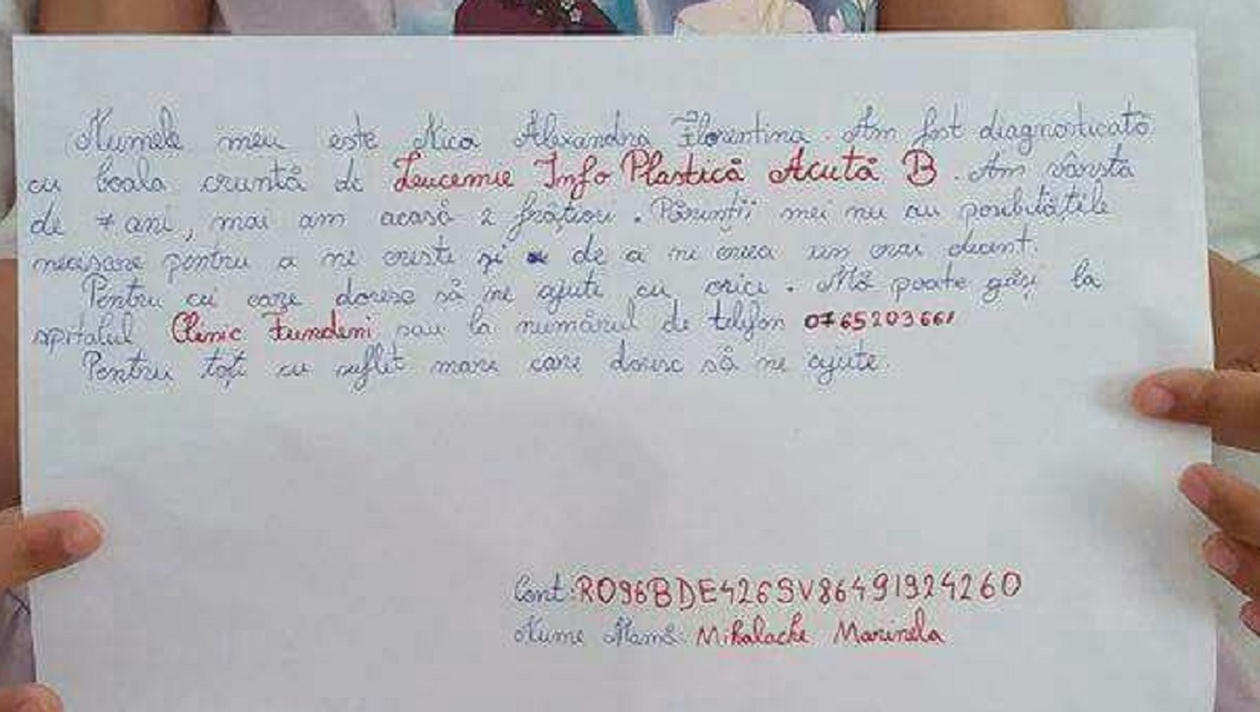 Numele meu este Nica Alexandra Florentina. Am fost diagnosticată
cu boala cruntă de Leucemie Info Plastică Acută B. Am vârsta
de 7 ani, mai am acasă 2 frățiori. Părinții mei nu au posibilitățile
necesare pentru a ne crește și de a ne crea un trai decent.
Pentru cei care doresc să ne ajute cu orice. Mă poate găsi la
spitalul Clinic Fundeni sau la numărul de telefon 0765203661
Pentru toți cu suflet mare care doresc să ne ajute.
Cont: RO96BDE426SV86491924260
Nume Mamă: Mihalache Marinela